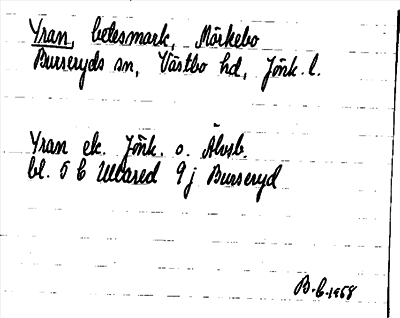 Yran, betesmark, Mörkebo
Burseryds sn, Västbo hd, Jönk. l.
Yran ek. Jönk. o. Älvsb.
bl. 5 C Ullared 9 j Burseryd
B. C. 1968